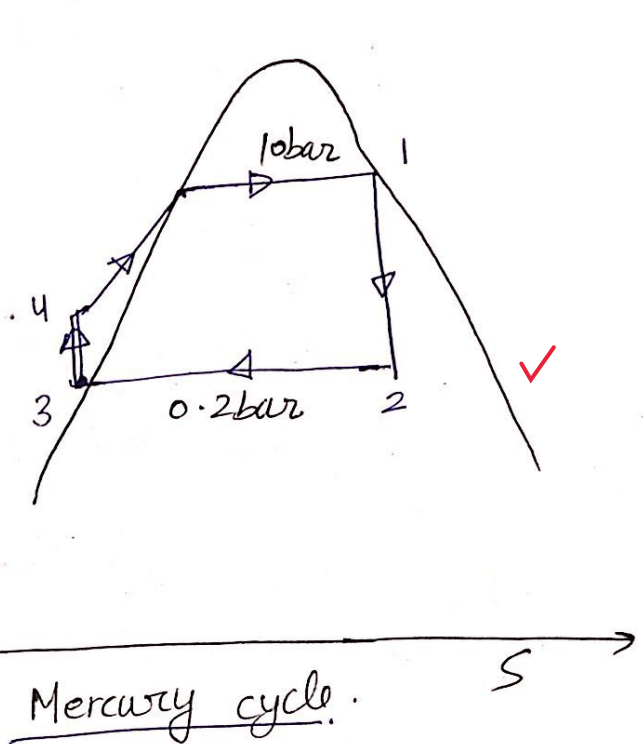 10bar 1
4
3 0.2bar 2
S
Mercury cycle.